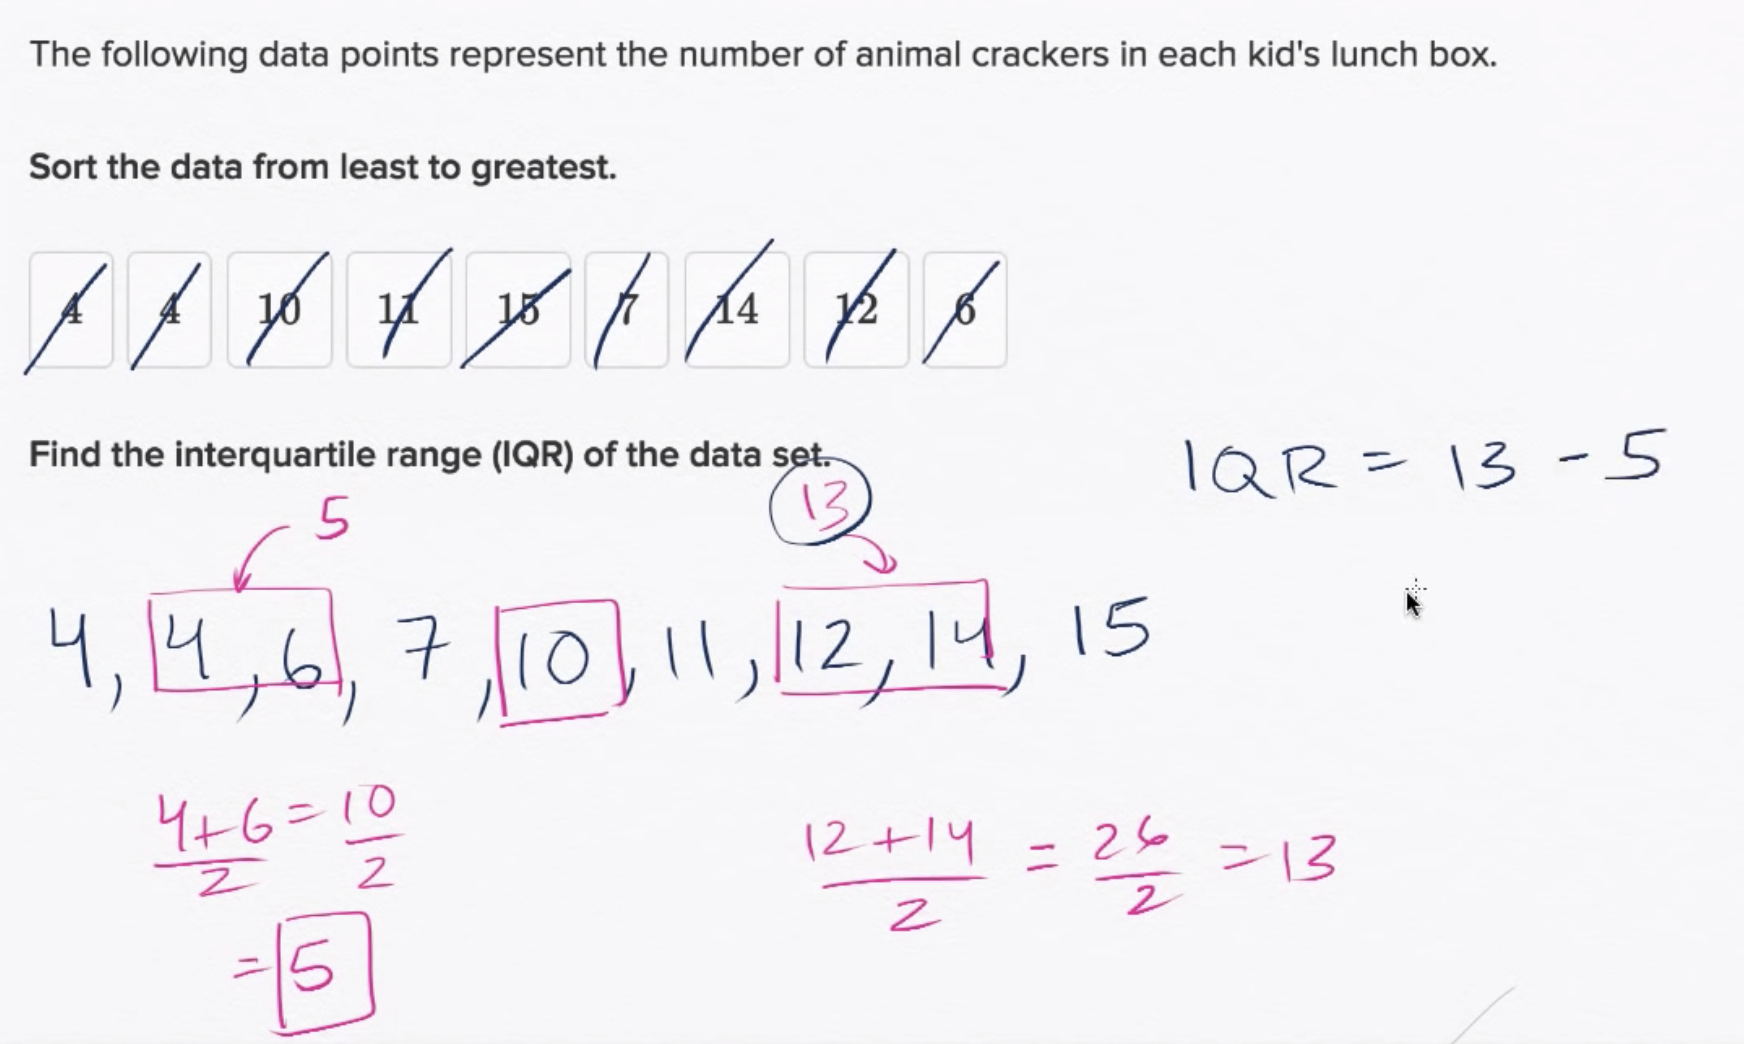 The following data points represent the number of animal crackers in each kid's lunch box.
Sort the data from least to greatest.
4 4 10 11 15 7 14 12 6
Find the interquartile range (IQR) of the data set.
IQR = 13 - 5
5 13
4, 4, 6, 7, 10, 11, 12, 14, 15
4+6/2 = 10/2
= 5
12+14/2 = 26/2 = 13